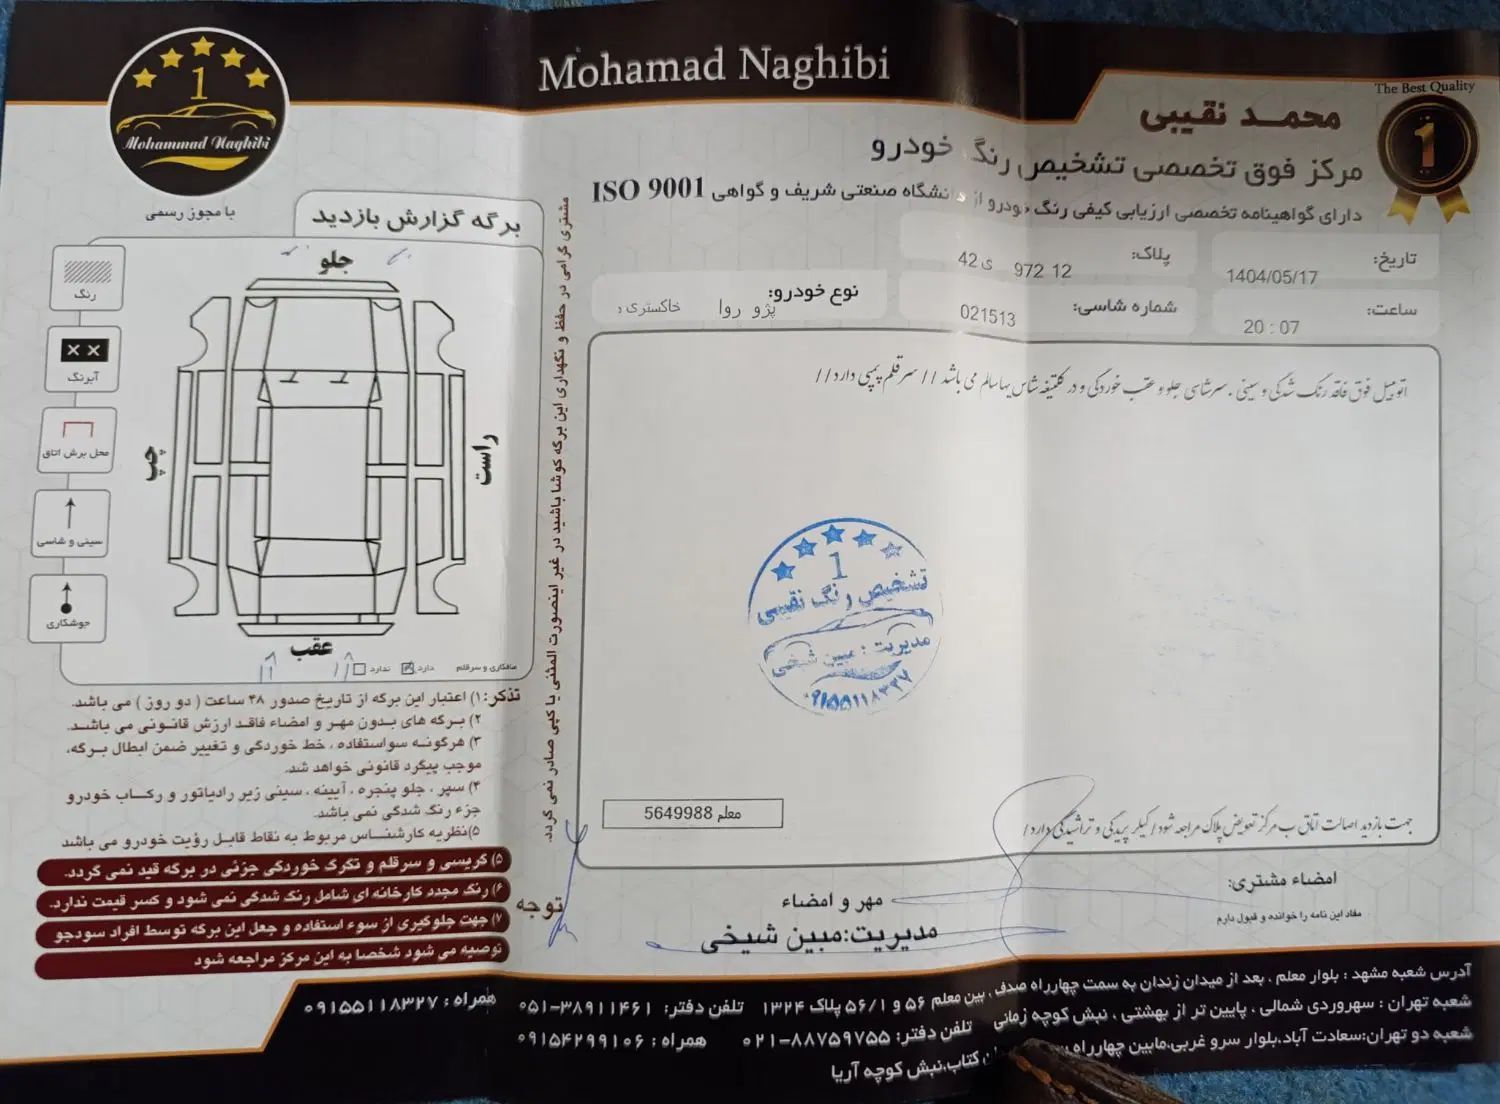 Mohamad Naghibi
The Best Quality
1
محمد نقیبی
مرکز فوق تخصصی تشخیص رنگ خودرو
دارای گواهینامه تخصصی ارزیابی کیفی رنگ خودرو از دانشگاه صنعتی شریف و گواهی ISO 9001
تاریخ: 1404/05/17
پلاک: 12 972 ی 42
ساعت: 20 : 07
شماره شاسی: 021513
نوع خودرو: پژو روا خاکستری د
اتومبیل فوق فاقد رنگ شدگی و سینی ، سرشاسی جلو و عقب خوردگی و در کلتیغه شاسیها سالم می باشد // سرقلم پمپی دارد //
1
تشخیص رنگ نقیبی
مدیریت : مبین شیخی
۰۹۱۵۵۱۱۸۳۲۷
معلم 5649988
جهت بازدید اصالت اتاق ب مرکز تعویض پلاک مراجعه شود / کیلر پریدگی و تراشیدگی دارد /
امضاء مشتری:
مفاد این نامه را خوانده و قبول دارم
مهر و امضاء
مدیریت:مبین شیخی
مشتری گرامی در حفظ و نگهداری این برگه کوشا باشید در غیر اینصورت المثنی یا کپی صادر نمی گردد.
1
Mohammad Naghibi
با مجوز رسمی
برگه گزارش بازدید
رنگ
آبرنگ
محل برش اتاق
سینی و شاسی
جوشکاری
جلو
چپ
راست
عقب
صافکاری و سرقلم دارد ندارد
تذکر: ۱) اعتبار این برگه از تاریخ صدور ۴۸ ساعت ( دو روز ) می باشد.
۲) برگه های بدون مهر و امضاء فاقد ارزش قانونی می باشد.
۳) هرگونه سواستفاده ، خط خوردگی و تغییر ضمن ابطال برگه،
موجب پیگرد قانونی خواهد شد.
۴) سپر ، جلو پنجره ، آیینه ، سینی زیر رادیاتور و رکاب خودرو
جزء رنگ شدگی نمی باشد.
۵)نظریه کارشناس مربوط به نقاط قابل رؤیت خودرو می باشد
توجه
۵) گریسی و سرقلم و تگرگ خوردگی جزئی در برگه قید نمی گردد.
۶) رنگ مجدد کارخانه ای شامل رنگ شدگی نمی شود و کسر قیمت ندارد.
۷) جهت جلوگیری از سوء استفاده و جعل این برگه توسط افراد سودجو
توصیه می شود شخصا به این مرکز مراجعه شود
آدرس شعبه مشهد : بلوار معلم ، بعد از میدان زندان به سمت چهارراه صدف ، بین معلم ۵۶ و ۵۶/۱ پلاک ۱۳۲۴ تلفن دفتر: ۰۵۱-۳۸۹۱۱۴۶۱ همراه : ۰۹۱۵۵۱۱۸۳۲۷
شعبه تهران : سهروردی شمالی ، پایین تر از بهشتی ، نبش کوچه زمانی تلفن دفتر: ۰۲۱-۸۸۷۵۹۷۵۵ همراه : ۰۹۱۵۴۲۹۹۱۰۶
شعبه دو تهران:سعادت آباد،بلوار سرو غربی،مابین چهارراه
کتاب،نبش کوچه آریا